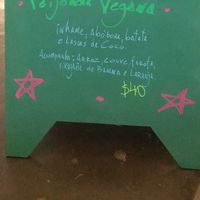 Feijoada Vegana
inhame, abóbora, batata
e lascas de coco
Acompanha: arroz, couve, farofa,
vinagrete de Banana e Laranja
$40